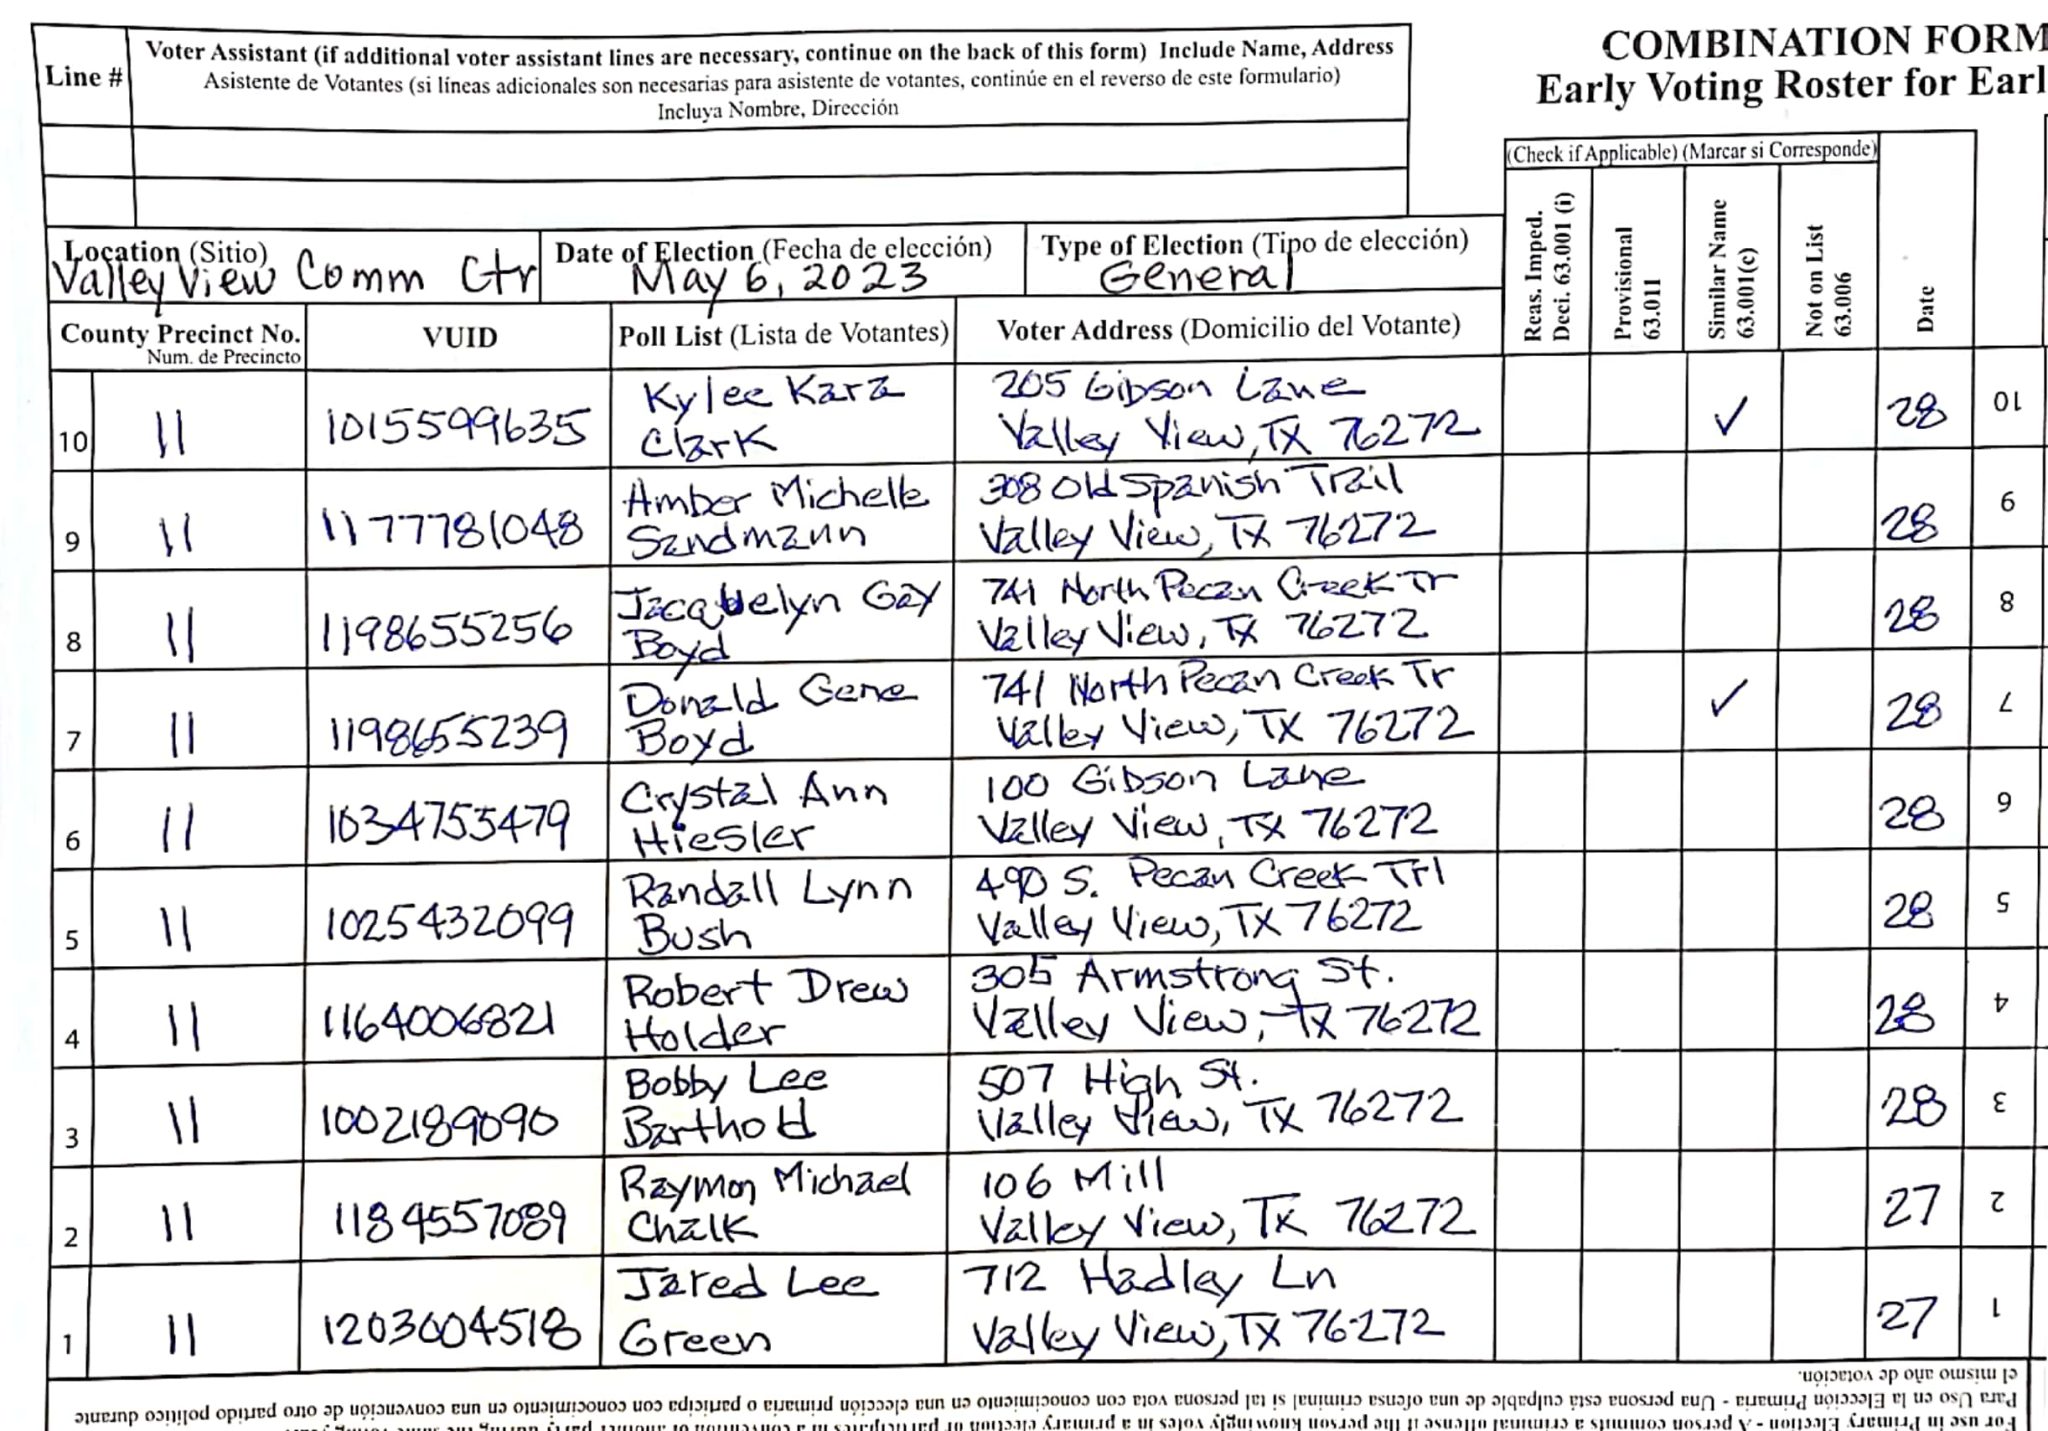 COMBINATION FORM
Early Voting Roster for Earl
Line #
Voter Assistant (if additional voter assistant lines are necessary, continue on the back of this form) Include Name, Address
Asistente de Votantes (si líneas adicionales son necesarias para asistente de votantes, continúe en el reverso de este formulario)
Incluya Nombre, Dirección
(Check if Applicable) (Marcar si Corresponde)
Reas. Imped.
Deci. 63.001 (i)
Provisional
63.011
Similar Name
63.001(c)
Not on List
63.006
Date
Location (Sitio)
Valley View Comm Ctr
Date of Election (Fecha de elección)
May 6, 2023
Type of Election (Tipo de elección)
General
County Precinct No.
Num. de Precincto
VUID
Poll List (Lista de Votantes)
Voter Address (Domicilio del Votante)
10 11 1015599635 Kylee Kara 205 Gibson Lane ✓ 28 10
Clark Valley View, TX 76272
9 11 1177781048 Amber Michelle 308 Old Spanish Trail 28 9
Sandmann Valley View, TX 76272
8 11 1198655256 Jacquelyn Gay 741 North Pecan Creek Tr 28 8
Boyd Valley View, TX 76272
7 11 1198655239 Donald Gene 741 North Pecan Creek Tr ✓ 28 7
Boyd Valley View, TX 76272
6 11 1034755479 Crystal Ann 100 Gibson Lane 28 6
Hiesler Valley View, TX 76272
5 11 1025432099 Randall Lynn 490 S. Pecan Creek Trl 28 5
Bush Valley View, TX 76272
4 11 1164006821 Robert Drew 305 Armstrong St. 28 4
Holder Valley View, TX 76272
3 11 1002189090 Bobby Lee 507 High St. 28 3
Barthold Valley View, TX 76272
2 11 1184557089 Raymon Michael 106 Mill 27 2
Chalk Valley View, TX 76272
1 11 1203604518 Jared Lee 712 Hadley Ln 27 1
Green Valley View, TX 76272
For use in Primary Election - A person commits a criminal offense if the person knowingly votes in a primary election or participates in a convention of another party during the same voting
Para Uso en la Elección Primaria - Una persona está culpable de una ofensa criminal si tal persona vota con conocimiento en una elección primaria o participa con conocimiento en una convención de otro partido político durante
el mismo año de votación.